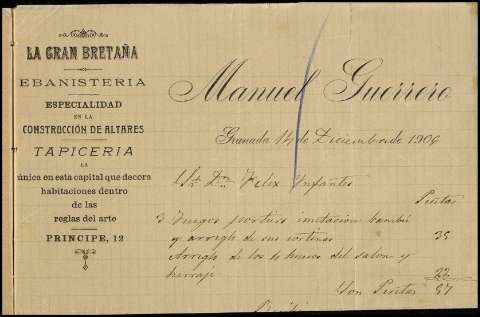 LA GRAN BRETAÑA
EBANISTERIA
ESPECIALIDAD
EN LA
CONSTRUCCIÓN DE ALTARES
TAPICERIA
LA
única en esta capital que decora
habitaciones dentro
de las
reglas del arte
PRINCIPE, 12
Manuel Guerrero
Granada 14 de Diciembre de 1906
Sr. Dn. Felix Infantes
Pesetas
3 Juegos portiers imitacion bambú
y arreglo de sus cortinas 35
Arreglo de los 4 huecos del salon y
herraje 22
Son Pesetas 57